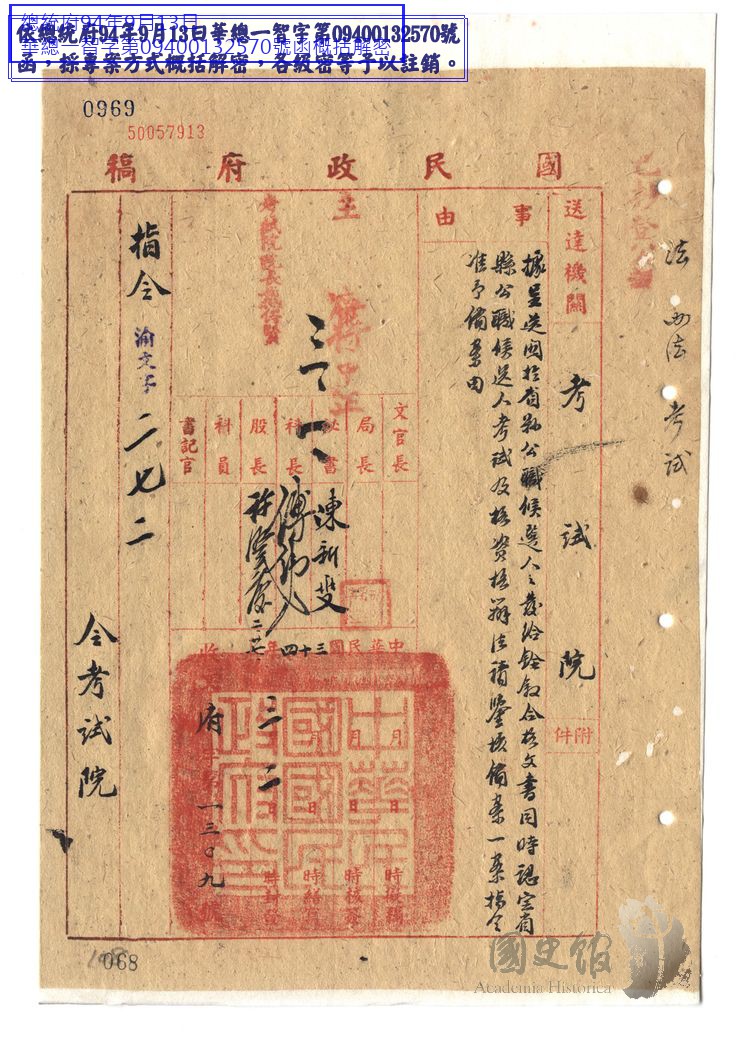 總統府94年9月13日
華總一智字第09400132570號函概括解密
依總統府94年9月13日華總一智字第09400132570號
函，採專案方式概括解密，各級密等予以註銷。
0969
50057913
國民政府稿
法
考試
送達機關
考試院
附件
事由
據呈送關於有縣公職候選人之發給銓敘合格文書同時認定省
縣公職候選人考試及格資格辦法請鑒核備案一案指令
准予備案由
主
蔣中正
考試院院長戴傳賢
三 一
文官長
局長
秘書
科長
股長
科員
書記官
陳新燮
中華民國三十四年
收
月 日 時核簽
月 日 時繕寫
中華民國國民政府印
三 二
府
字第一三〇九號
指令
渝文字
二七二
令考試院
068
國史館
Academia Historica